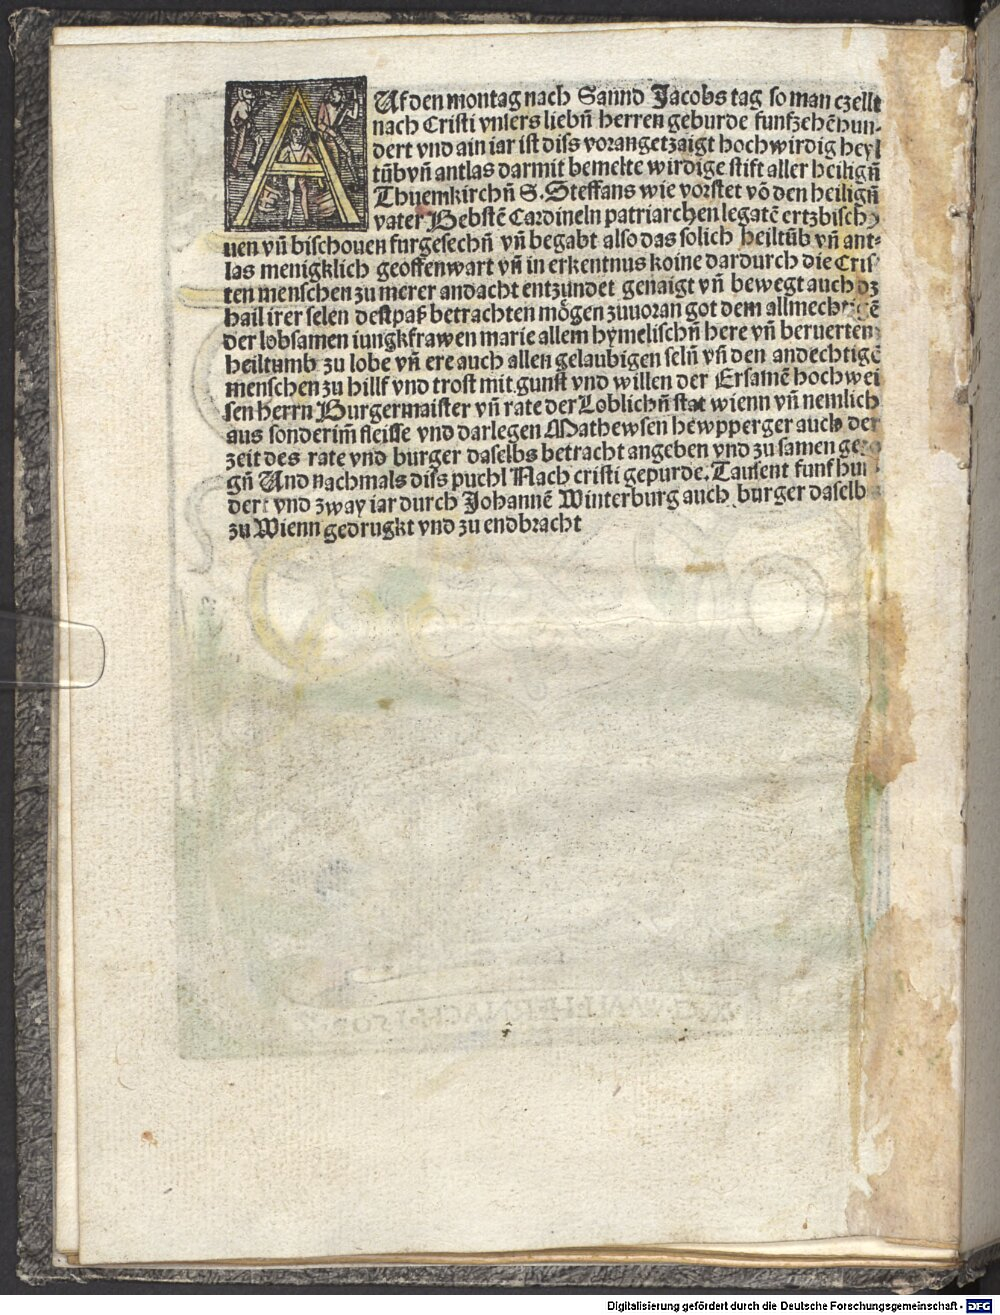 AUf den montag nach Sannd Jacobs tag so man czellt
nach Cristi vnsers liebn̄ herren geburde funfzehēhun-
dert vnd ain iar ist diss vorangetzaigt hochwirdig heyl
tūbvn̄ antlas darmit bemelte wirdige stift aller heilign̄
Thuemkirchn̄ S. Steffans wie vorstet vō den heilign̄
vater Bebstē Cardineln patriarchen legatē ertzbisch
uen vn̄ bischouen furgesechn̄ vn̄ begabt also das solich heiltūb vn̄ ant-
las menigklich geoffenwart vn̄ in erkentnus kome dardurch die Cris
ten menschen zu merer andacht entzundet genaigt vn̄ bewegt auch dz
hail irer selen destpaß betrachten mögen zuuoran got dem allmechtigē
der lobsamen iungkfrawen marie allem hymelischn̄ here vn̄ berverten
heiltumb zu lobe vn̄ ere auch allen gelaubigen seln̄ vn̄ den andechtigē
menschen zu hillf vnd trost mit gunst vnd willen der Ersamē hochwei
sen herrn Burgermaister vn̄ rate der Loblichn̄ stat wienn vn̄ nemlich
aus sonderim̄ fleisse vnd darlegen Mathewsen hewpperger auch der
zeit des rate vnd burger daselbs betracht angeben vnd zu samen gezo
gn̄ Und nachmals diss puchl Nach cristi gepurde. Tausent funf hun
dert vnd zway iar durch Johannē Winterburg auch burger daselb
zu Wienn gedrugkt vnd zu endbracht
Digitalisierung gefördert durch die Deutsche Forschungsgemeinschaft - DFG